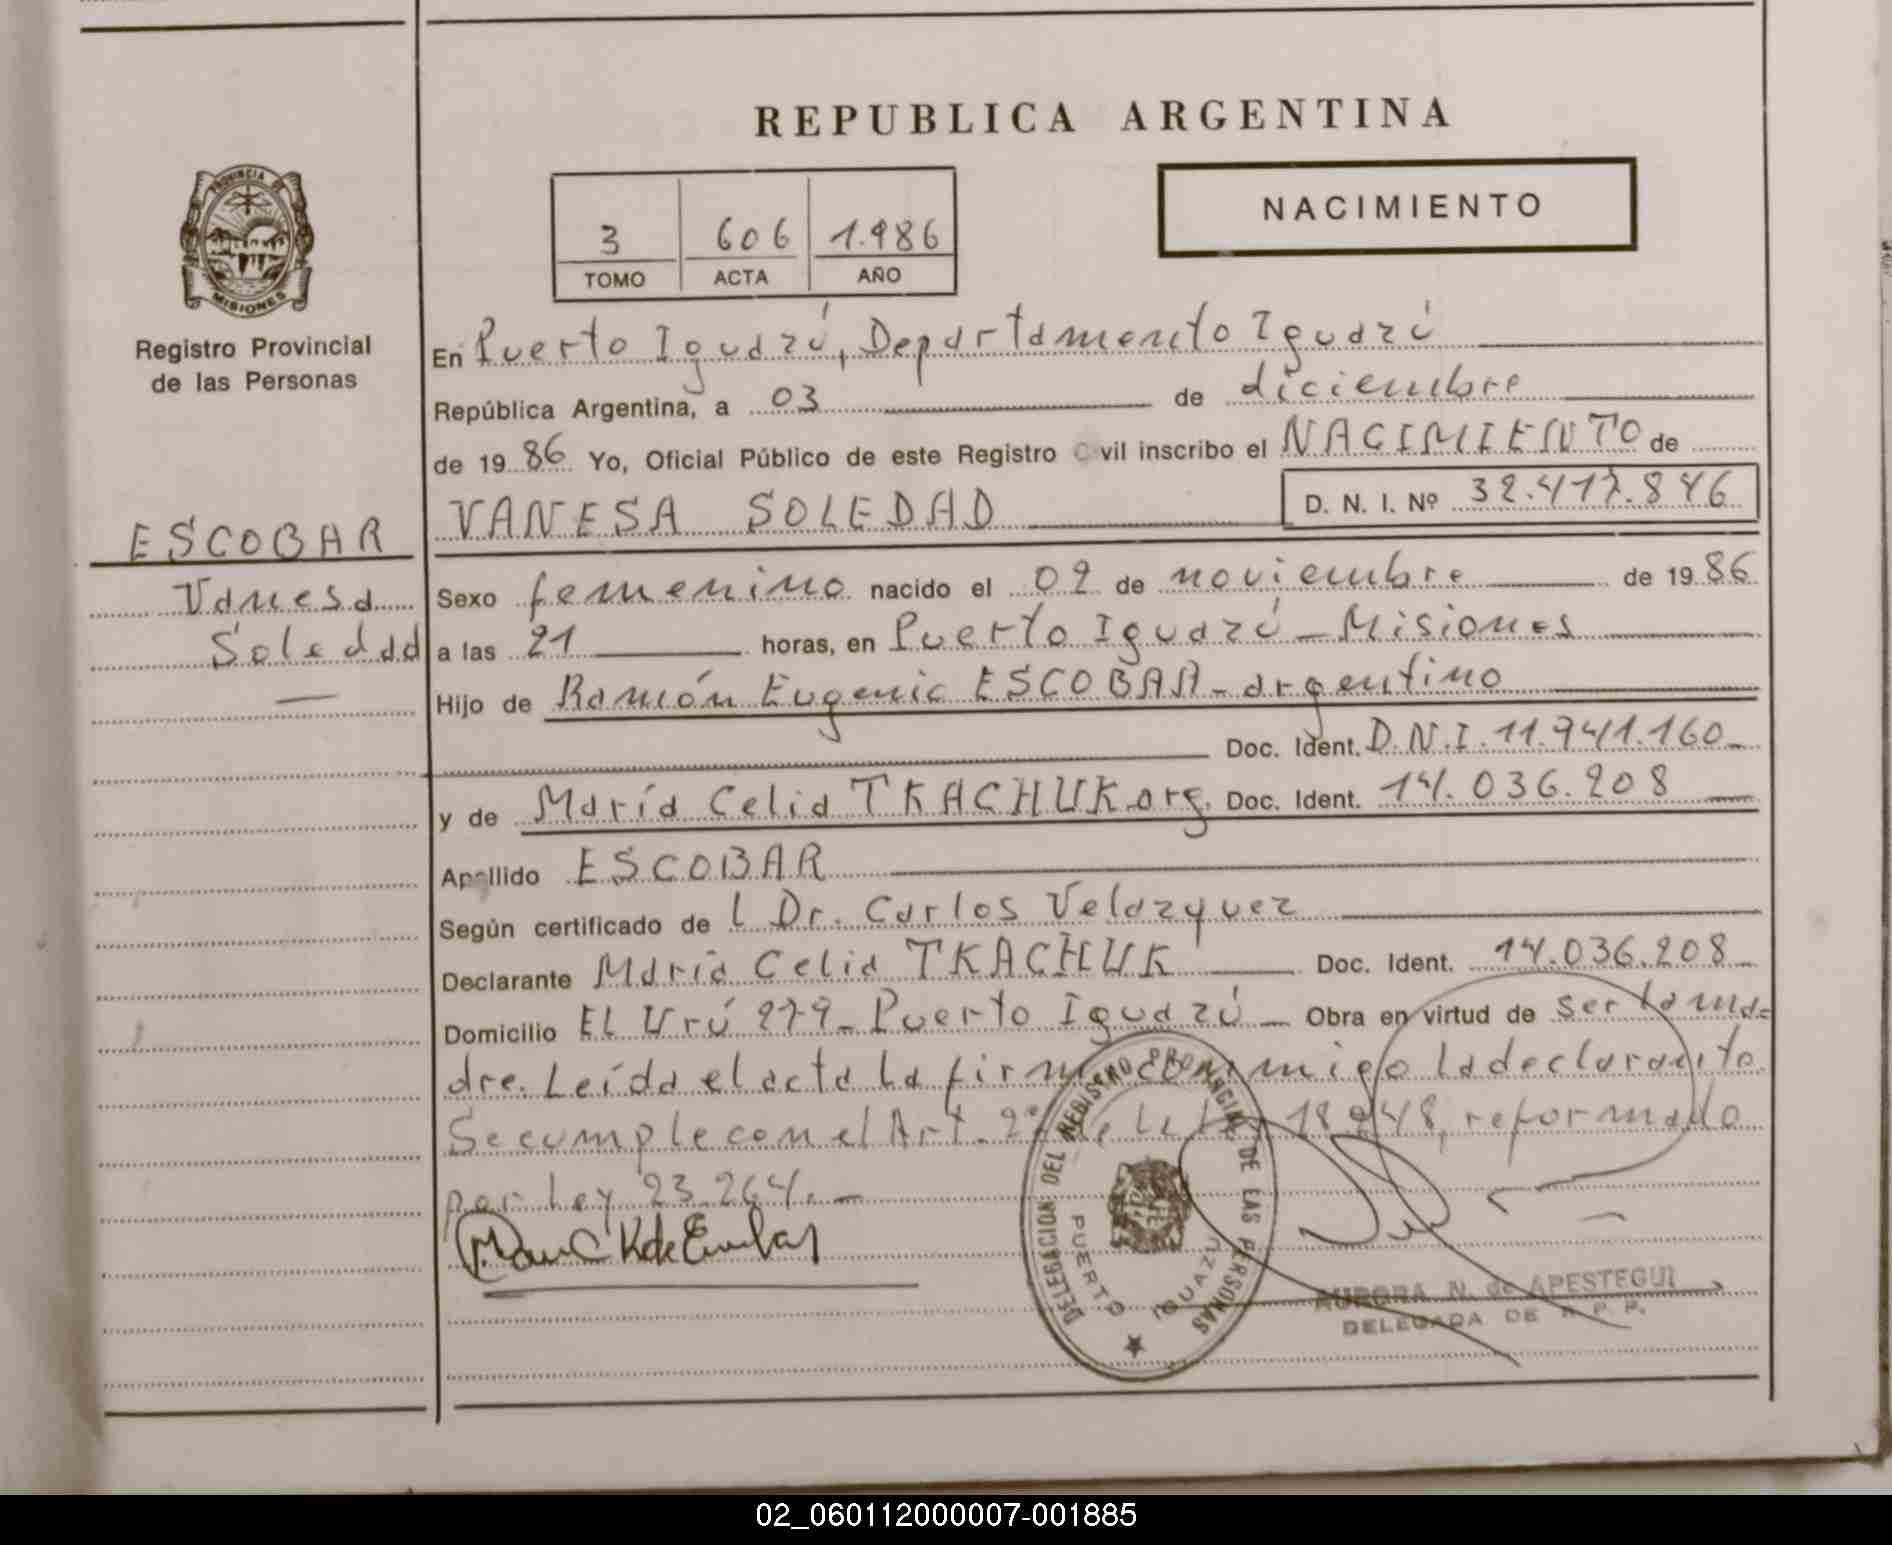 REPUBLICA ARGENTINA
NACIMIENTO
3 606 1.986
TOMO ACTA AÑO
PROVINCIA DE
MISIONES
Registro Provincial
de las Personas
ESCOBAR
Vanesa
Soledad
En Puerto Iguazú, Departamento Iguazú
República Argentina, a 03 de diciembre
de 19 86 Yo, Oficial Público de este Registro Civil inscribo el NACIMIENTO de
VANESA SOLEDAD D. N. I. Nº 32.417.846
Sexo femenino nacido el 02 de noviembre de 19 86
a las 21 horas, en Puerto Iguazú - Misiones
Hijo de Ramón Eugenio ESCOBAR - argentino
Doc. Ident. D.N.I. 11.941.160
y de María Celia TKACHUK arg. Doc. Ident. 14.036.208
Apellido ESCOBAR
Según certificado de l Dr. Carlos Velazquez
Declarante María Celia TKACHUK Doc. Ident. 14.036.208
Domicilio El Urú 279 - Puerto Iguazú - Obra en virtud de ser la ma=
dre. Leída el acta la firma conmigo la declarante.
Se cumple con el Art. 2º de la Ley 18.248, reformado
por Ley 23.264. -
DELEGACION DEL REGISTRO PROVINCIAL DE LAS PERSONAS
PUERTO IGUAZU
AURORA N. de APESTEGUI
DELEGADA DE R. P. P.
02_060112000007-001885